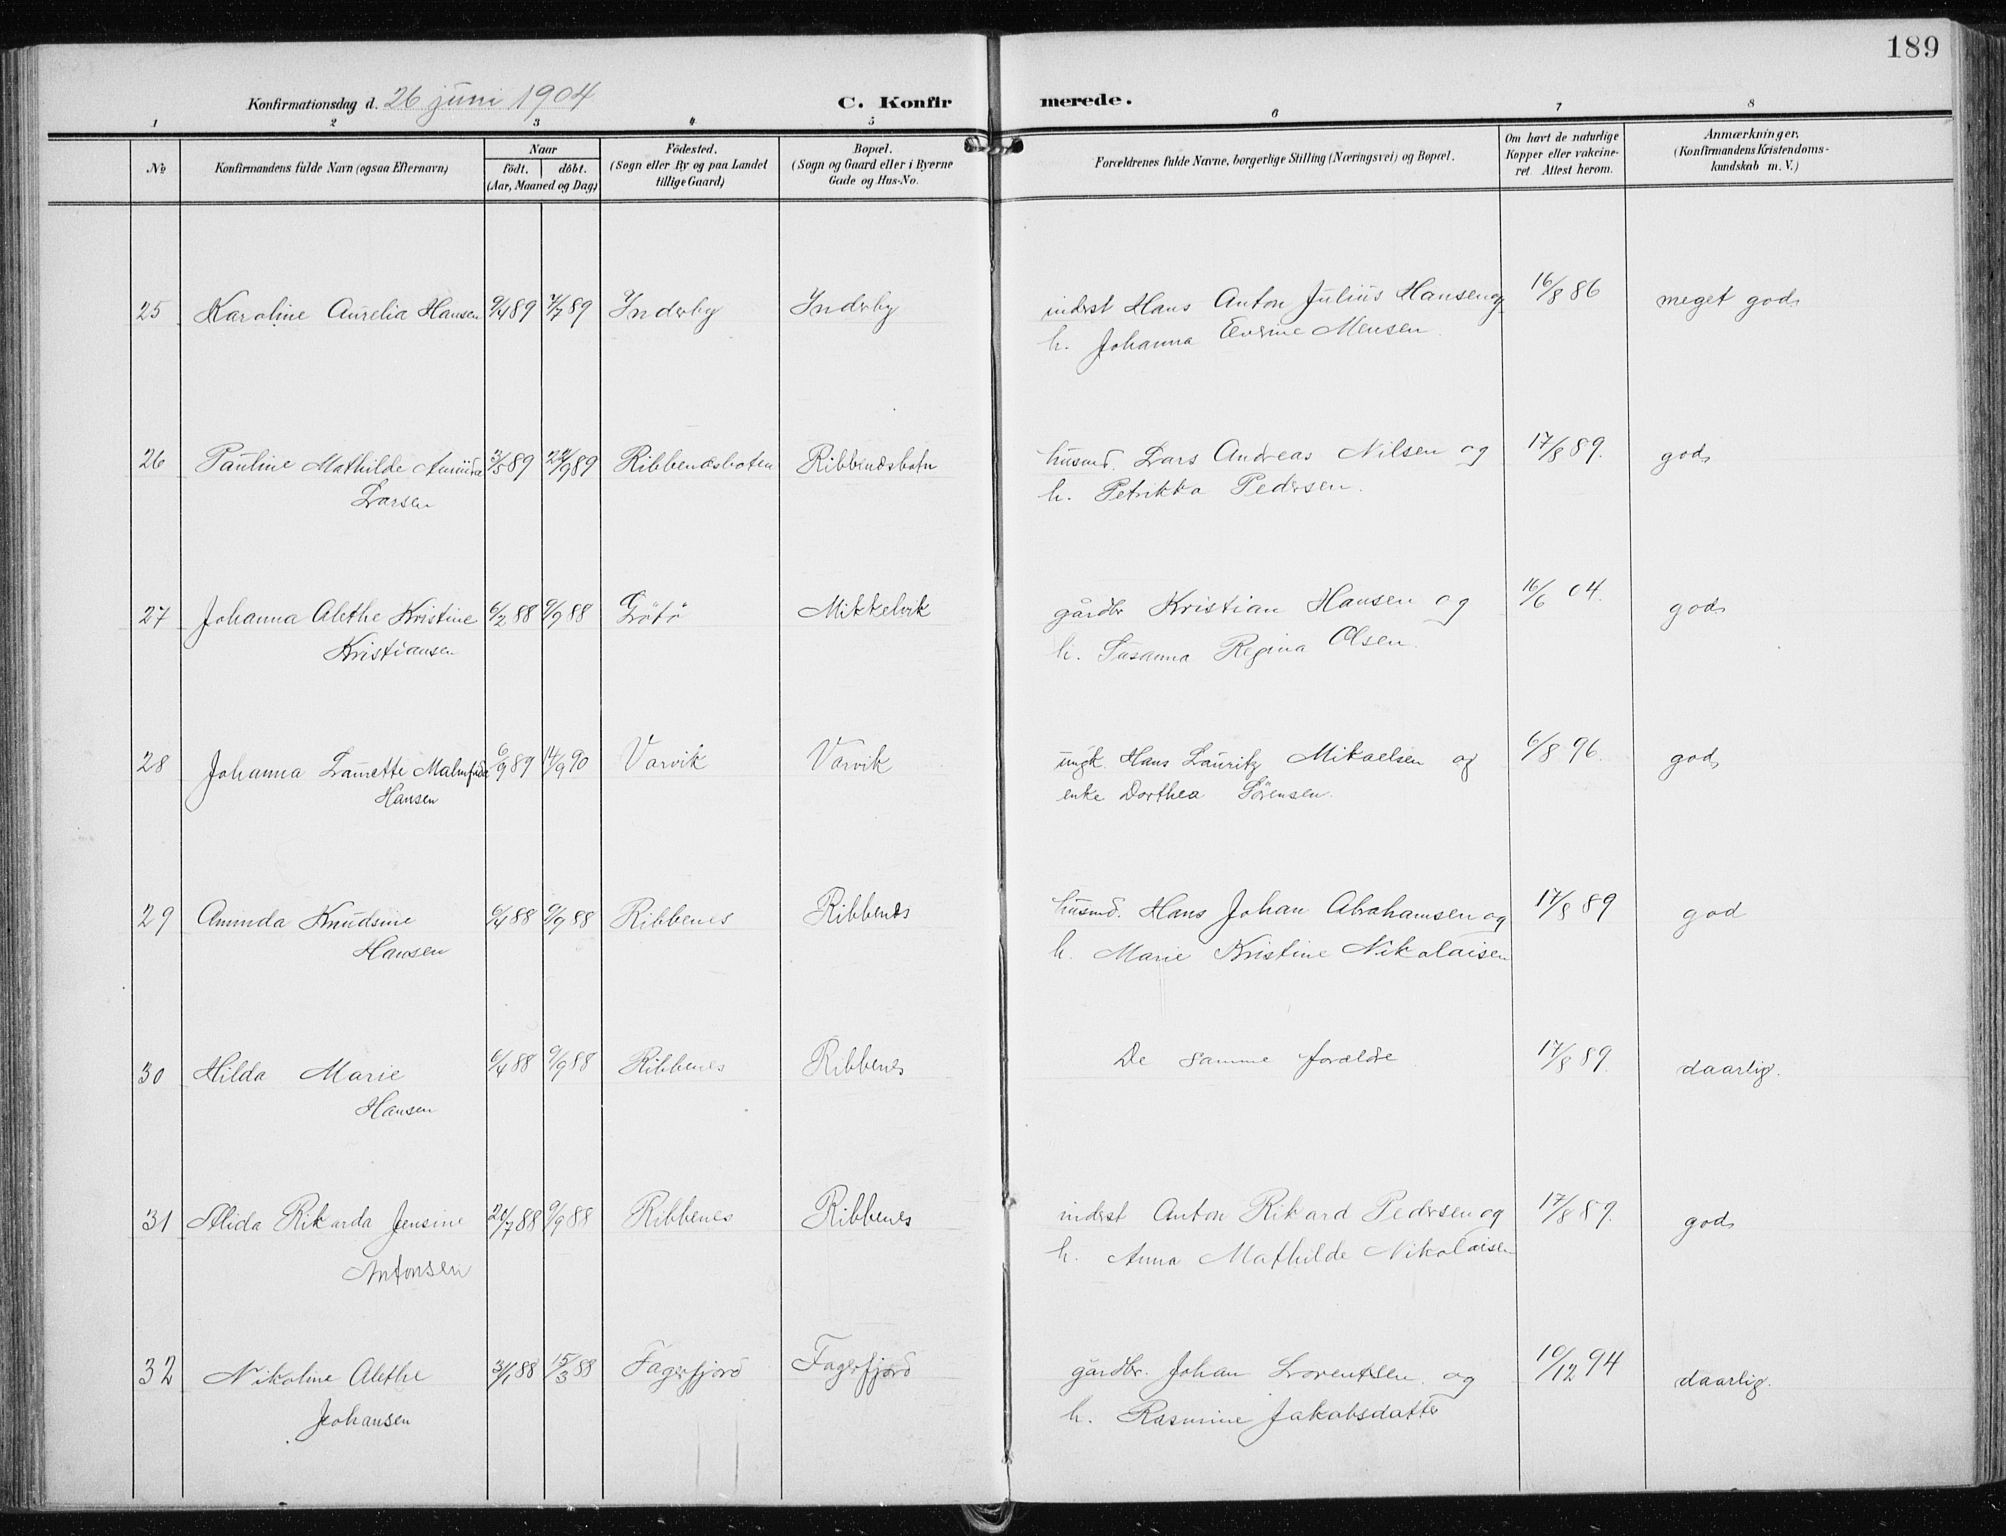 189
Konfirmationsdag d. 26 juni 1904 C. Konfir merede.
1 2 3 4 5 6 7 8
No Konfirmandens fulde Navn (ogsaa Efternavn) Naar födt. döbt. (Aar, Maaned og Dag) Födested. (Sogn eller By og paa Landet tillige Gaard) Bopæl. (Sogn og Gaard eller i Byerne Gade og Hus-No. Forældrenes fulde Navne, borgerlige Stilling (Næringsvei) og Bopæl. Om havt de naturlige Kopper eller vakcineret. Attest herom. Anmærkninger. (Konfirmandens Kristendomskundskab m. V.)
25 Karoline Aurelia Hansen 9/4 89 7/7 89 Inderby Inderby inderst Hans Anton Julius Hansen og 16/8 86 meget god
h. Johanna Mensen.
26 Pauline Mathilde 3/5 89 22/9 89 Ribbenesbotn Ribbenesbotn husmd. Lars Andreas Nilsen og 17/8 89. god
Larsen h. Petrikka Pedersen.
27 Johanna Alethe Kristine 6/2 88 9/9 88 Grötö Mikkelvik gårdbr Kristian Hansen og 16/6 04. god
Kristiansen h. Susanna Regina Olsen.
28 Johanna Laurette Malmfrida 6/9 89 14/9 90 Varvik Varvik ungk. Hans Lauritz Mikaelsen og 6/8 96. god
Hansen enke Dorthea Sörensen.
29 Aminda Knudsine 6/4 88 9/9 88 Ribbenes Ribbenes husmd. Hans Johan Abrahamsen og 17/8 89 god
Hansen h. Marie Kristine Nikolaisen
30 Hilda Marie 6/4 88 9/9 88 Ribbenes Ribbenes De samme forældre 17/8 89. daarlig.
Hansen
31 Alida Rikarda Jensine 20/7 88 9/9 88 Ribbenes Ribbenes inderst Anton Rikard Pedersen og 17/8 89. god
Antonsen h. Anna Mathilde Nikolaisen
32 Nikoline Alethe 3/1 88 15/3 88 Fagerfjord Fagerfjord gårdbr. Johan Lorentsen og 10/12 94 daarlig.
Johansen h. Rasmine Jakobsdatter